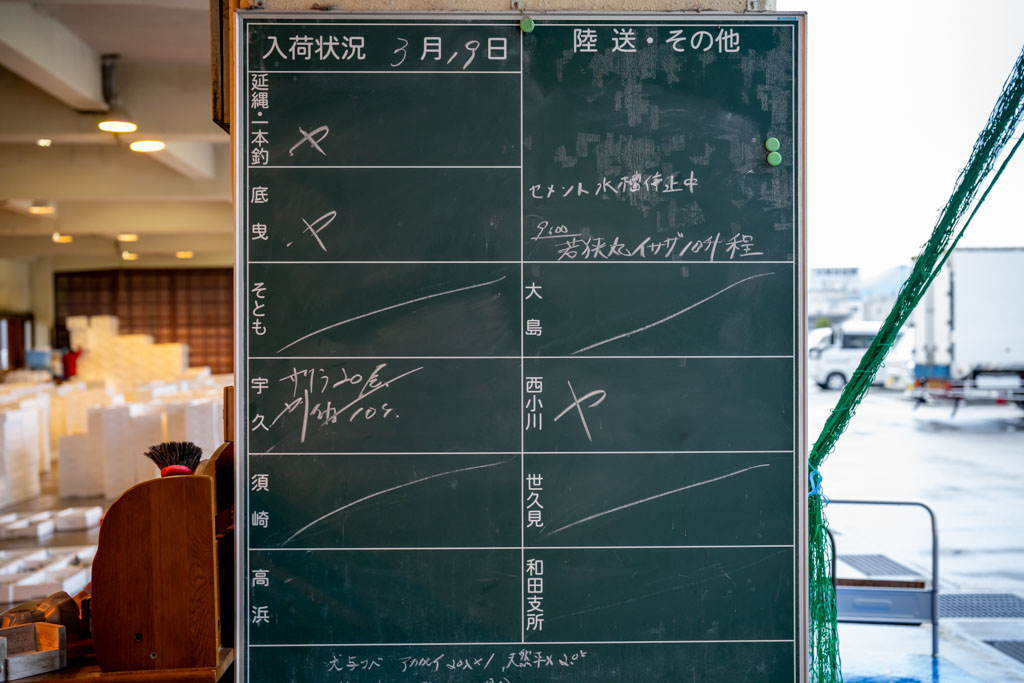 入荷状況 3月19日
陸送・その他
延縄・一本釣 ヤ
底曳 ヤ
セメント水槽停止中
9:00
若狭丸イサザ10升程
そとも
大島
宇久
サワラ20尾
西小川 ヤ
須崎
世久見
高浜
和田支所
アカガイ20入×1